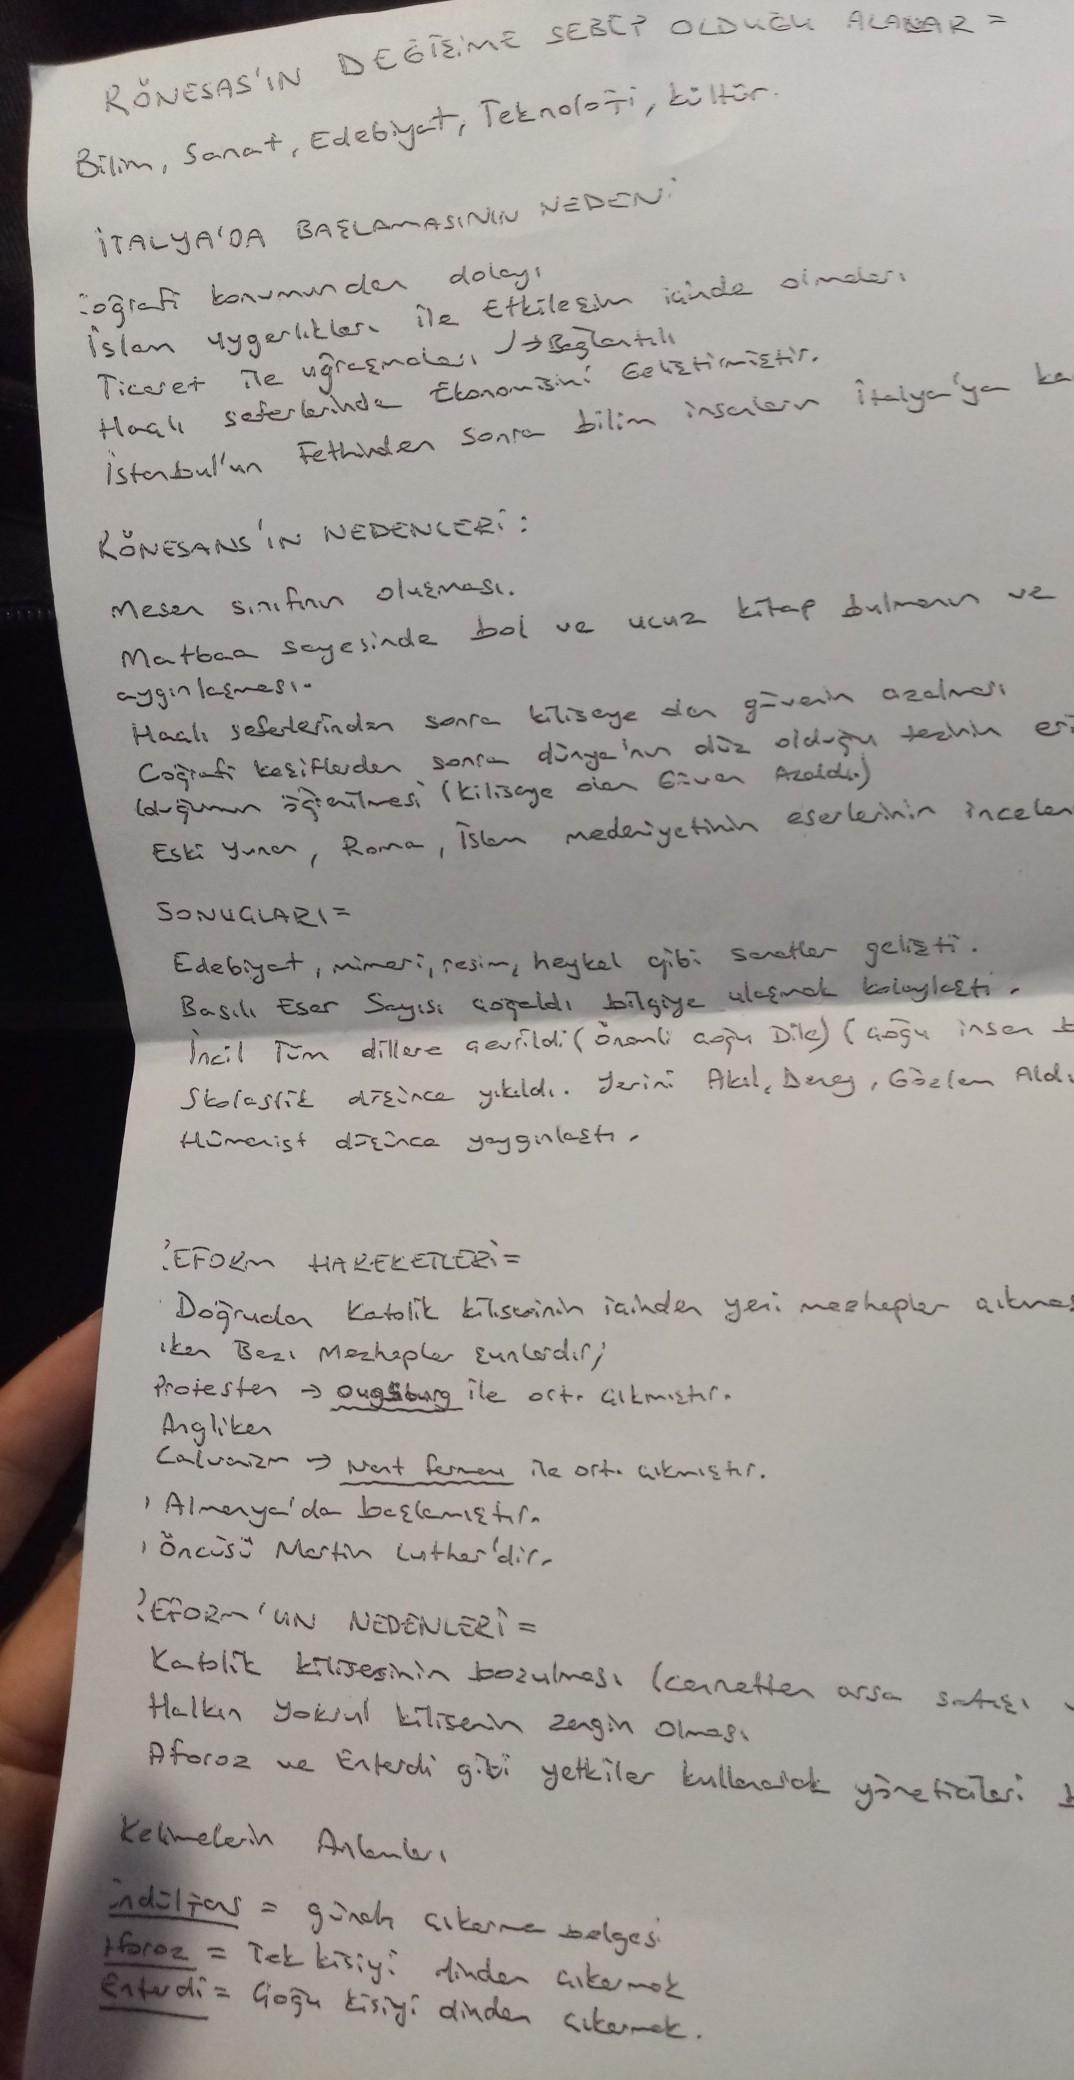 RÖNESAS'IN DEĞİŞİME SEBEP OLDUĞU ALANAR =
Bilim, Sanat, Edebiyat, Teknoloji, kültür.
İTALYA'DA BAŞLAMASININ NEDENİ
oğrafi konumundan dolayı
İslam uygarlıkları ile Etkileşim içinde olmaları
Ticaret ile uğraşmaları → Bağlantılı
Haçlı seferlerinde Ekonomisini Geliştirmiştir.
İstanbul'un Fethinden sonra bilim insanların İtalya'ya ka
RÖNESANS'IN NEDENLERİ :
Mesen sınıfının oluşması.
Matbaa sayesinde bol ve ucuz kitap bulmanın ve
aygınlaşması.
Haçlı seferlerinden sonra kiliseye olan güvenin azalması
Coğrafi keşiflerden sonra dünya'nın düz olduğu tezinin
lduğunun öğrenilmesi (kiliseye olan Güven Azaldı.)
Eski Yunan, Roma, İslam medeniyetinin eserlerinin incelen
SONUÇLARI =
Edebiyat, mimari, resim, heykel gibi sanatlar gelişti.
Basılı Eser Sayısı çoğaldı bilgiye ulaşmak kolaylaştı.
İncil Tüm dillere çevrildi (Önemli çoğu Dile) (Çoğu insan
Skolastik düşünce yıkıldı. Yerini Akıl, Deney, Gözlem Aldı
Hümanist düşünce yaygınlaştı.
EFORM HAREKETLERİ =
Doğrudan Katolik kilisesinin içinden yeni mezhepler çıkmas
iken Bazı Mezhepler şunlardır;
Protestan → Ougsburg ile ort. çıkmıştır.
Anglikan
Calvenizm → Nant fermanı ile ort. çıkmıştır.
Almanya'da başlamıştır.
Öncüsü Martin Luther'dir.
EFORM'UN NEDENLERİ =
Katolik kilisesinin bozulması (cennetten arsa satışı
Halkın yoksul kilisenin zengin olması
Aforoz ve Enterdi gibi yetkiler kullanarak yöneticileri
Kelimelerin Anlamları
Endüljans = günah çıkarma belgesi
Aforoz = Tek kişiyi dinden çıkarmak
Enterdi = Çoğu kişiyi dinden çıkarmak.